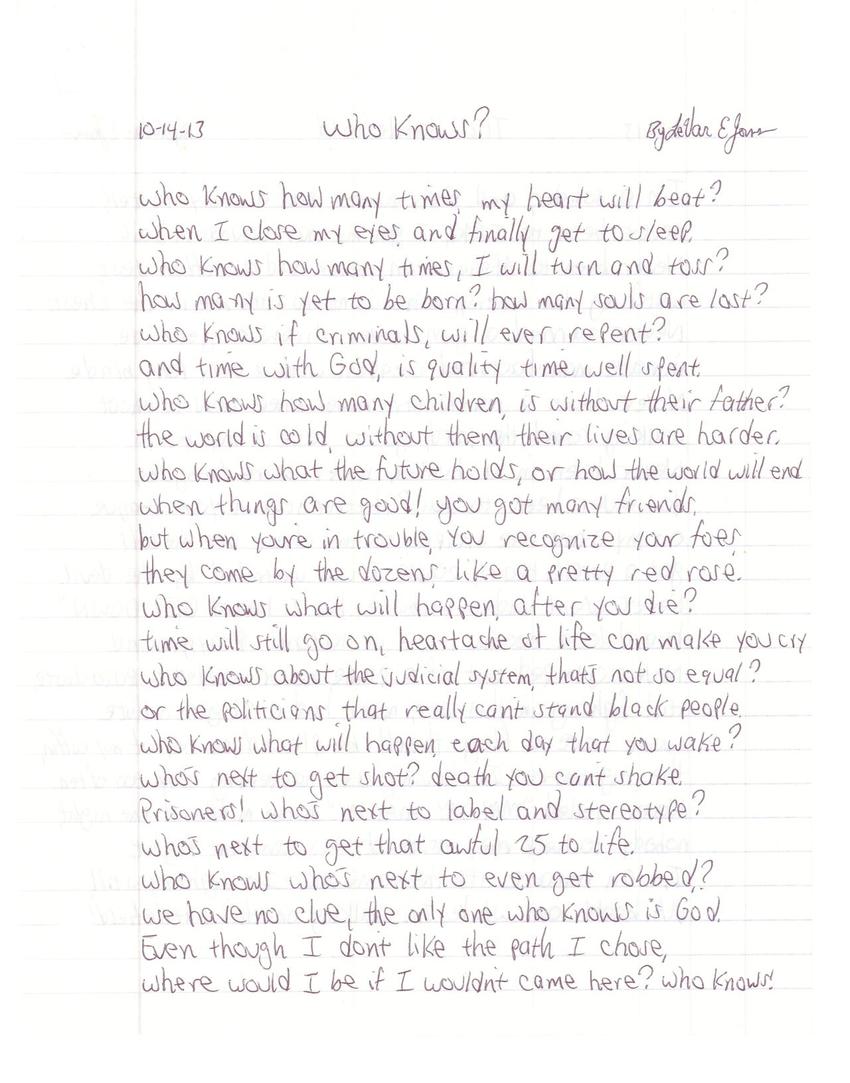 10-14-13 Who Knows? By LeVar E Jones
who knows how many times, my heart will beat?
when I close my eyes, and finally get to sleep.
who knows how many times, I will turn and toss?
how many is yet to be born? how many souls are lost?
who knows if criminals, will ever repent?
and time with God, is quality time well spent.
who knows how many children, is without their father?
the world is cold, without them, their lives are harder.
who knows what the future holds, or how the world will end
when things are good! you got many friends,
but when you're in trouble, you recognize your foes
they come by the dozens, like a pretty red rose.
who knows what will happen, after you die?
time will still go on, heartache of life can make you cry
who knows about the judicial system, that's not so equal?
or the politicians, that really can't stand black people.
who know what will happen, each day that you wake?
who's next to get shot? death you cant shake.
Prisoners! who's next to label and stereotype?
who's next to get that awful 25 to life.
who knows who's next to even get robbed?
we have no clue, the only one who knows is God.
Even though I don't like the path I chose,
where would I be if I wouldn't came here? who knows!